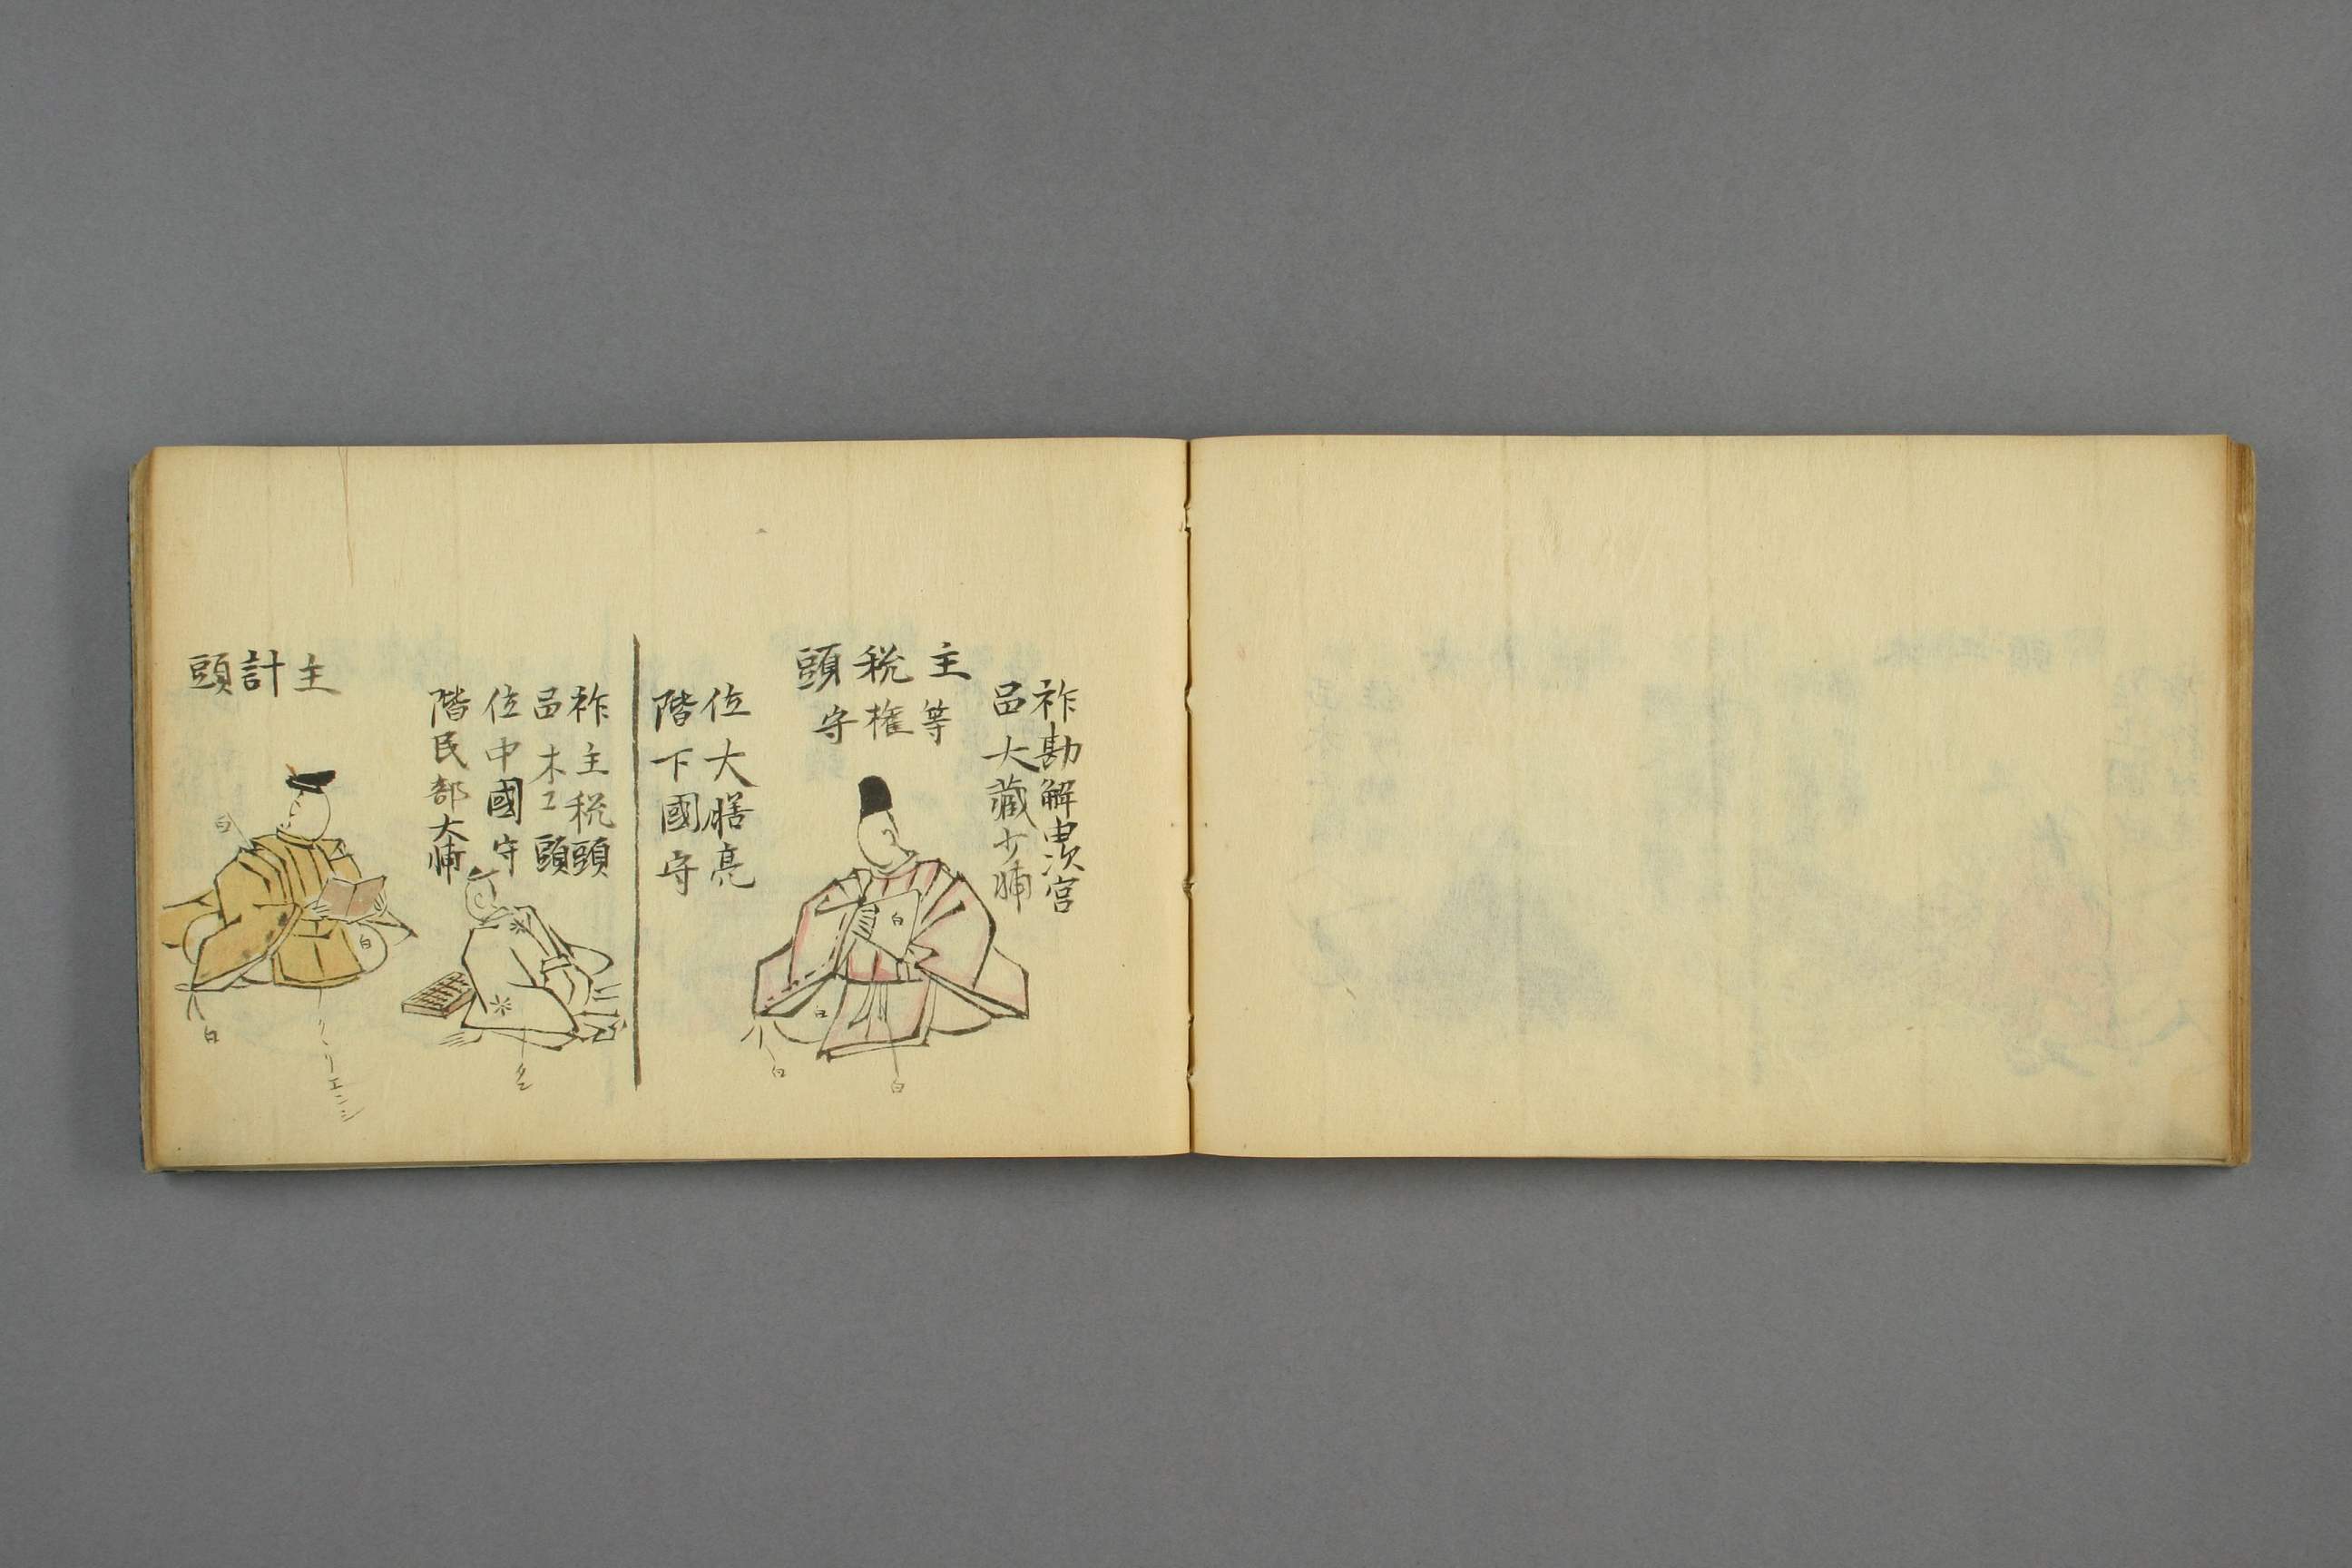 祚勘解由次官
品大藏少輔
主税頭
等権守
位大膳亮
階下國守
白
白
白
白
祚主税頭
品木工頭
位中國守
階民部大輔
主計頭
白
白
白